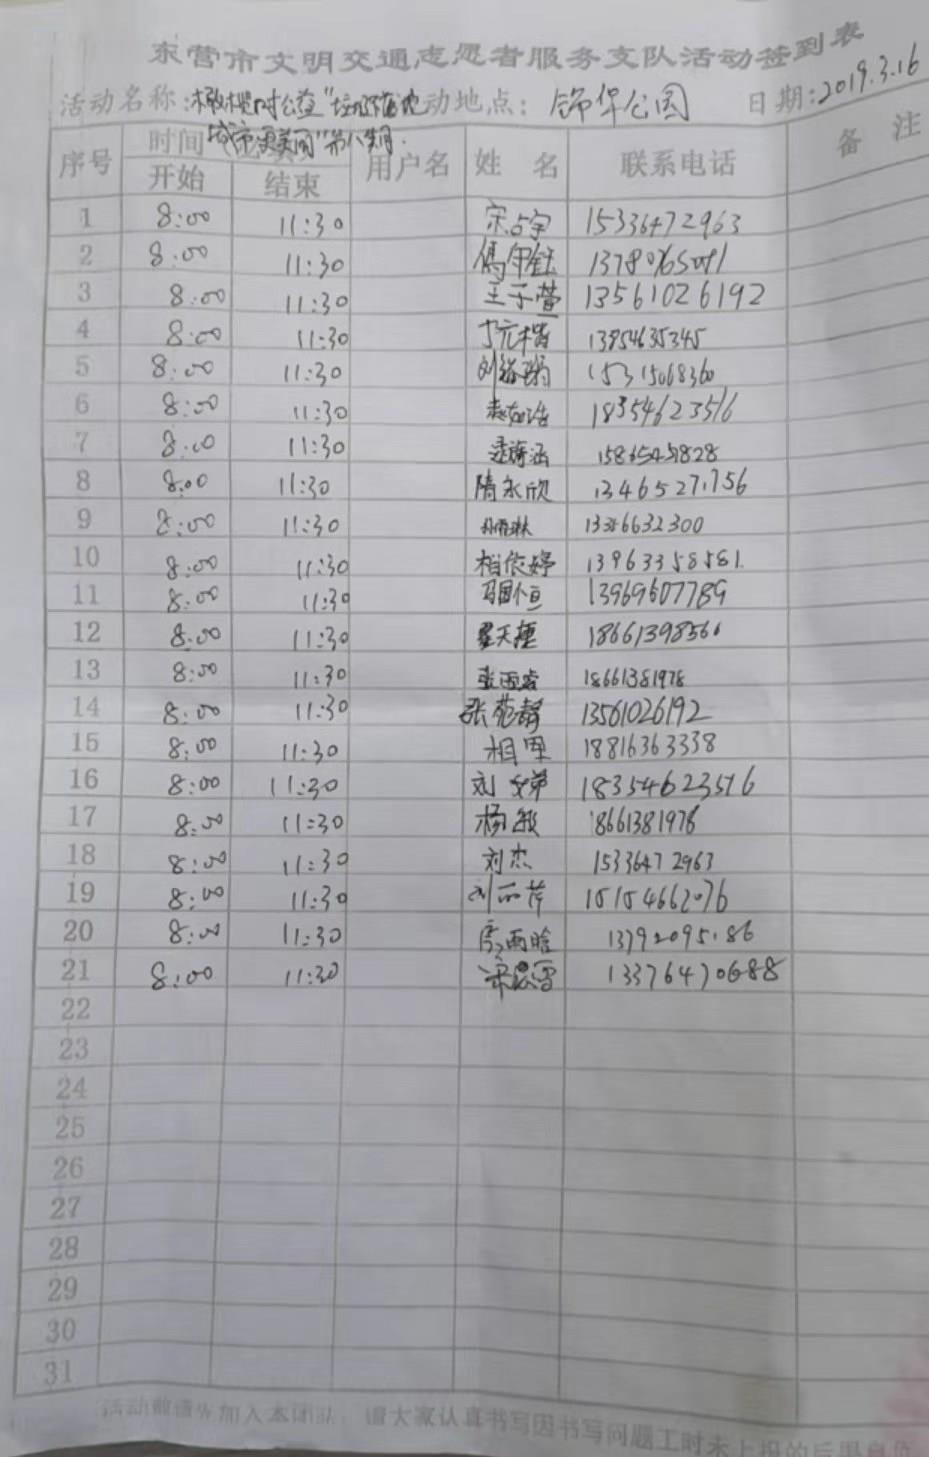 东营市文明交通志愿者服务支队活动签到表
活动名称:橄榄树公益"垃圾落地 动地点: 锦华公园 日期:2019.3.16
城市更美丽"第八期.
序号 时间 用户名 姓 名 联系电话 备 注
开始 结束
1 8:00 11:30 宋占宇 15336472963
2 8:00 11:30
3 8:00 11:30 王子萱 13561026192
4 8:00 11:30 13954635345
5 8:00 11:30 15315068360
6 8:00 11:30 18354623516
7 8:00 11:30
8 8:00 11:30 隋永欣 13465271756
9 8:00 11:30
10 8:00 11:30 相依婷 13963358581
11 8:00 11:30 13969607789
12 8:00 11:30 18661398566
13 8:00 11:30 张雨睿 18661381978
14 8:00 11:30 张苑静 13561026192
15 8:00 11:30 18816363338
16 8:00 11:30 刘 18354623516
17 8:00 11:30 杨敏 18661381978
18 8:00 11:30 刘杰 15336472963
19 8:00 11:30 刘丽萍 15154662076
20 8:00 11:30 雨晗
21 8:00 11:30 13376470688
22
23
24
25
26
27
28
29
30
31
活动前请先加入本团队，请大家认真书写因书写问题工时未上报的后果自负